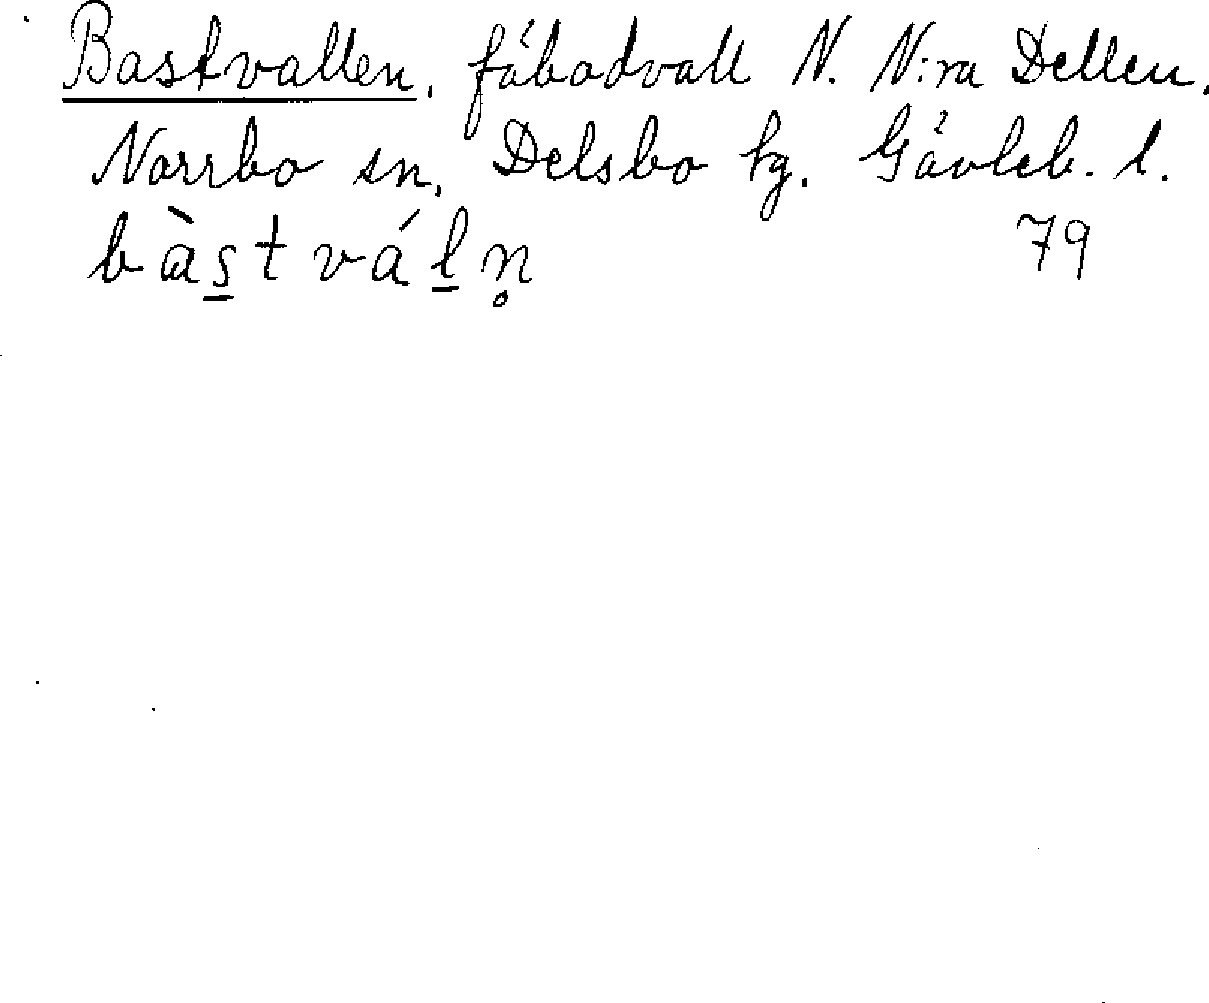 Bastvallen, fäbodvall N. N:ra Dellen.
Norrbo sn, Delsbo tg. Gävleb. l.
bàs̱tváḻn̥ 79